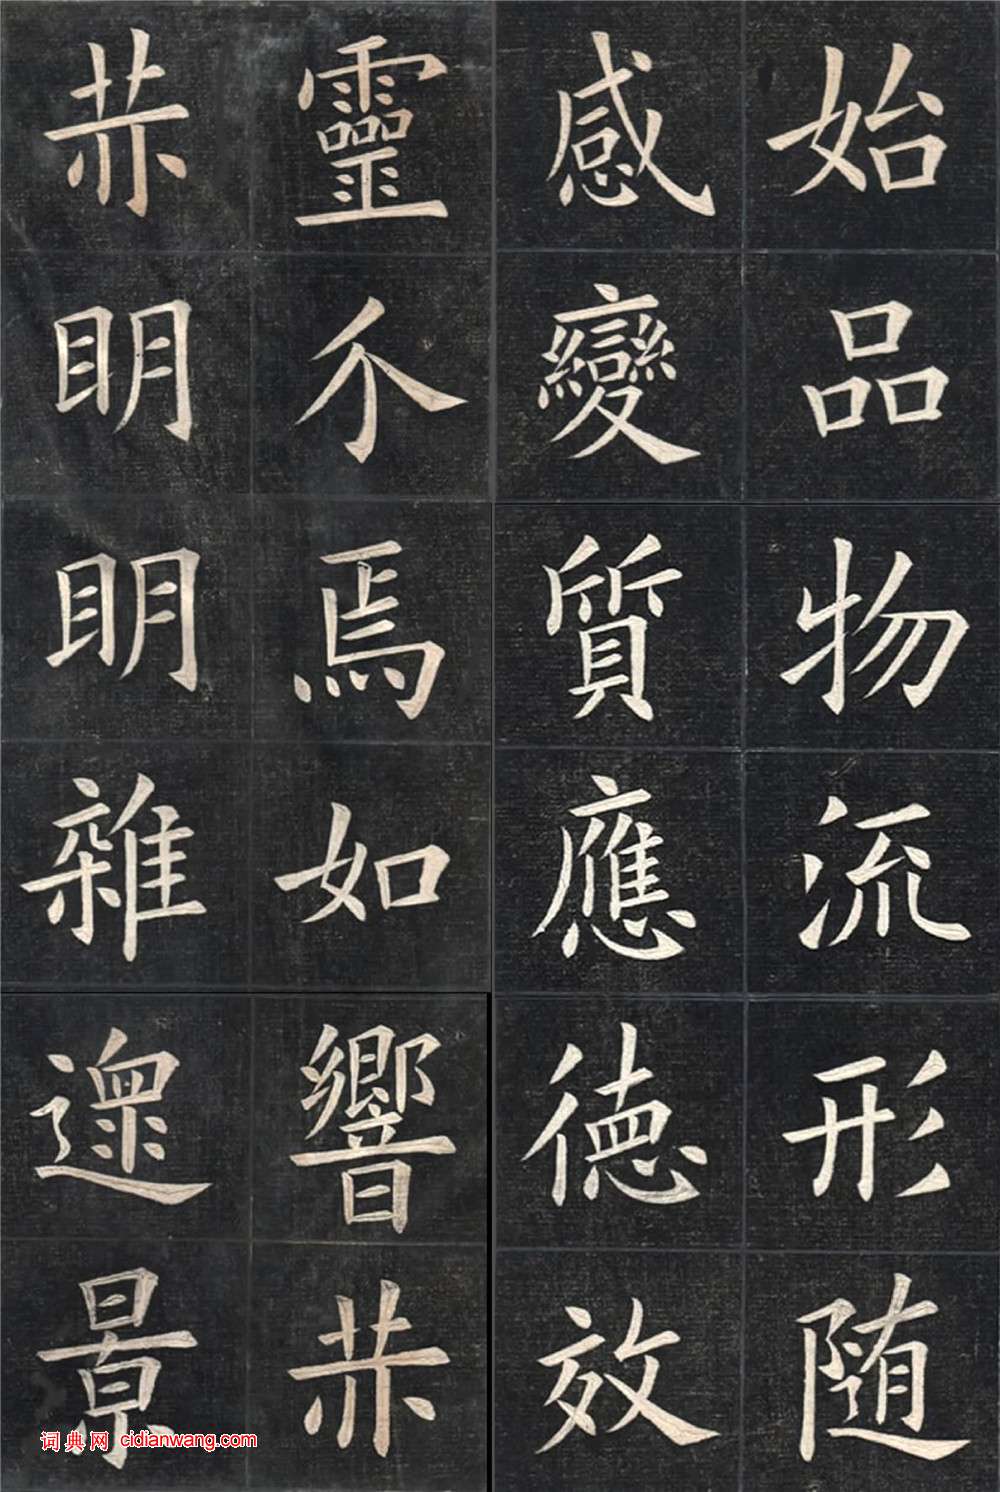 始品物流形随
感變質應德效
靈介焉如響赫
赫明明雜遝景
词典网 cidianwang.com